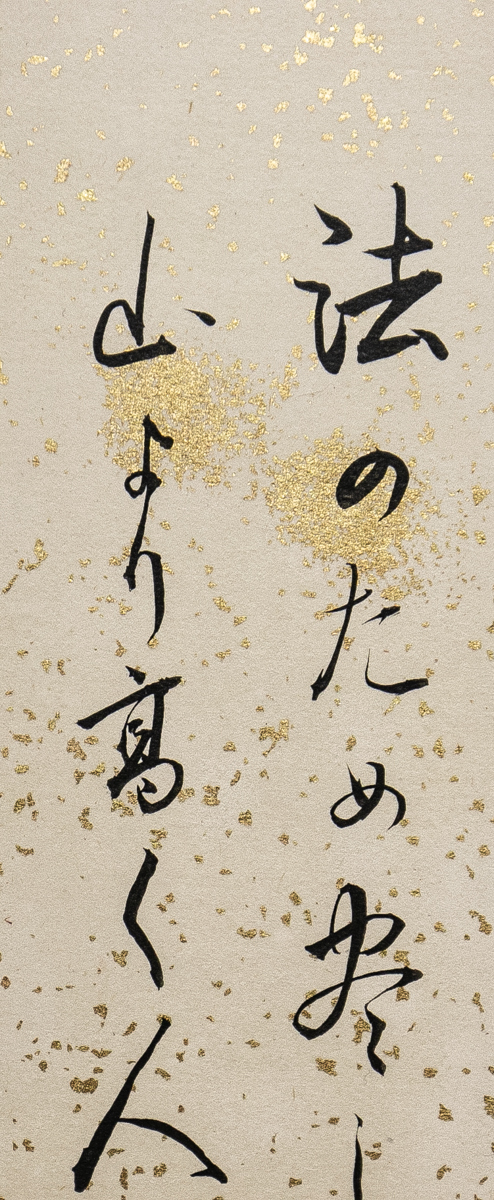 法のため尽し
山より高く人